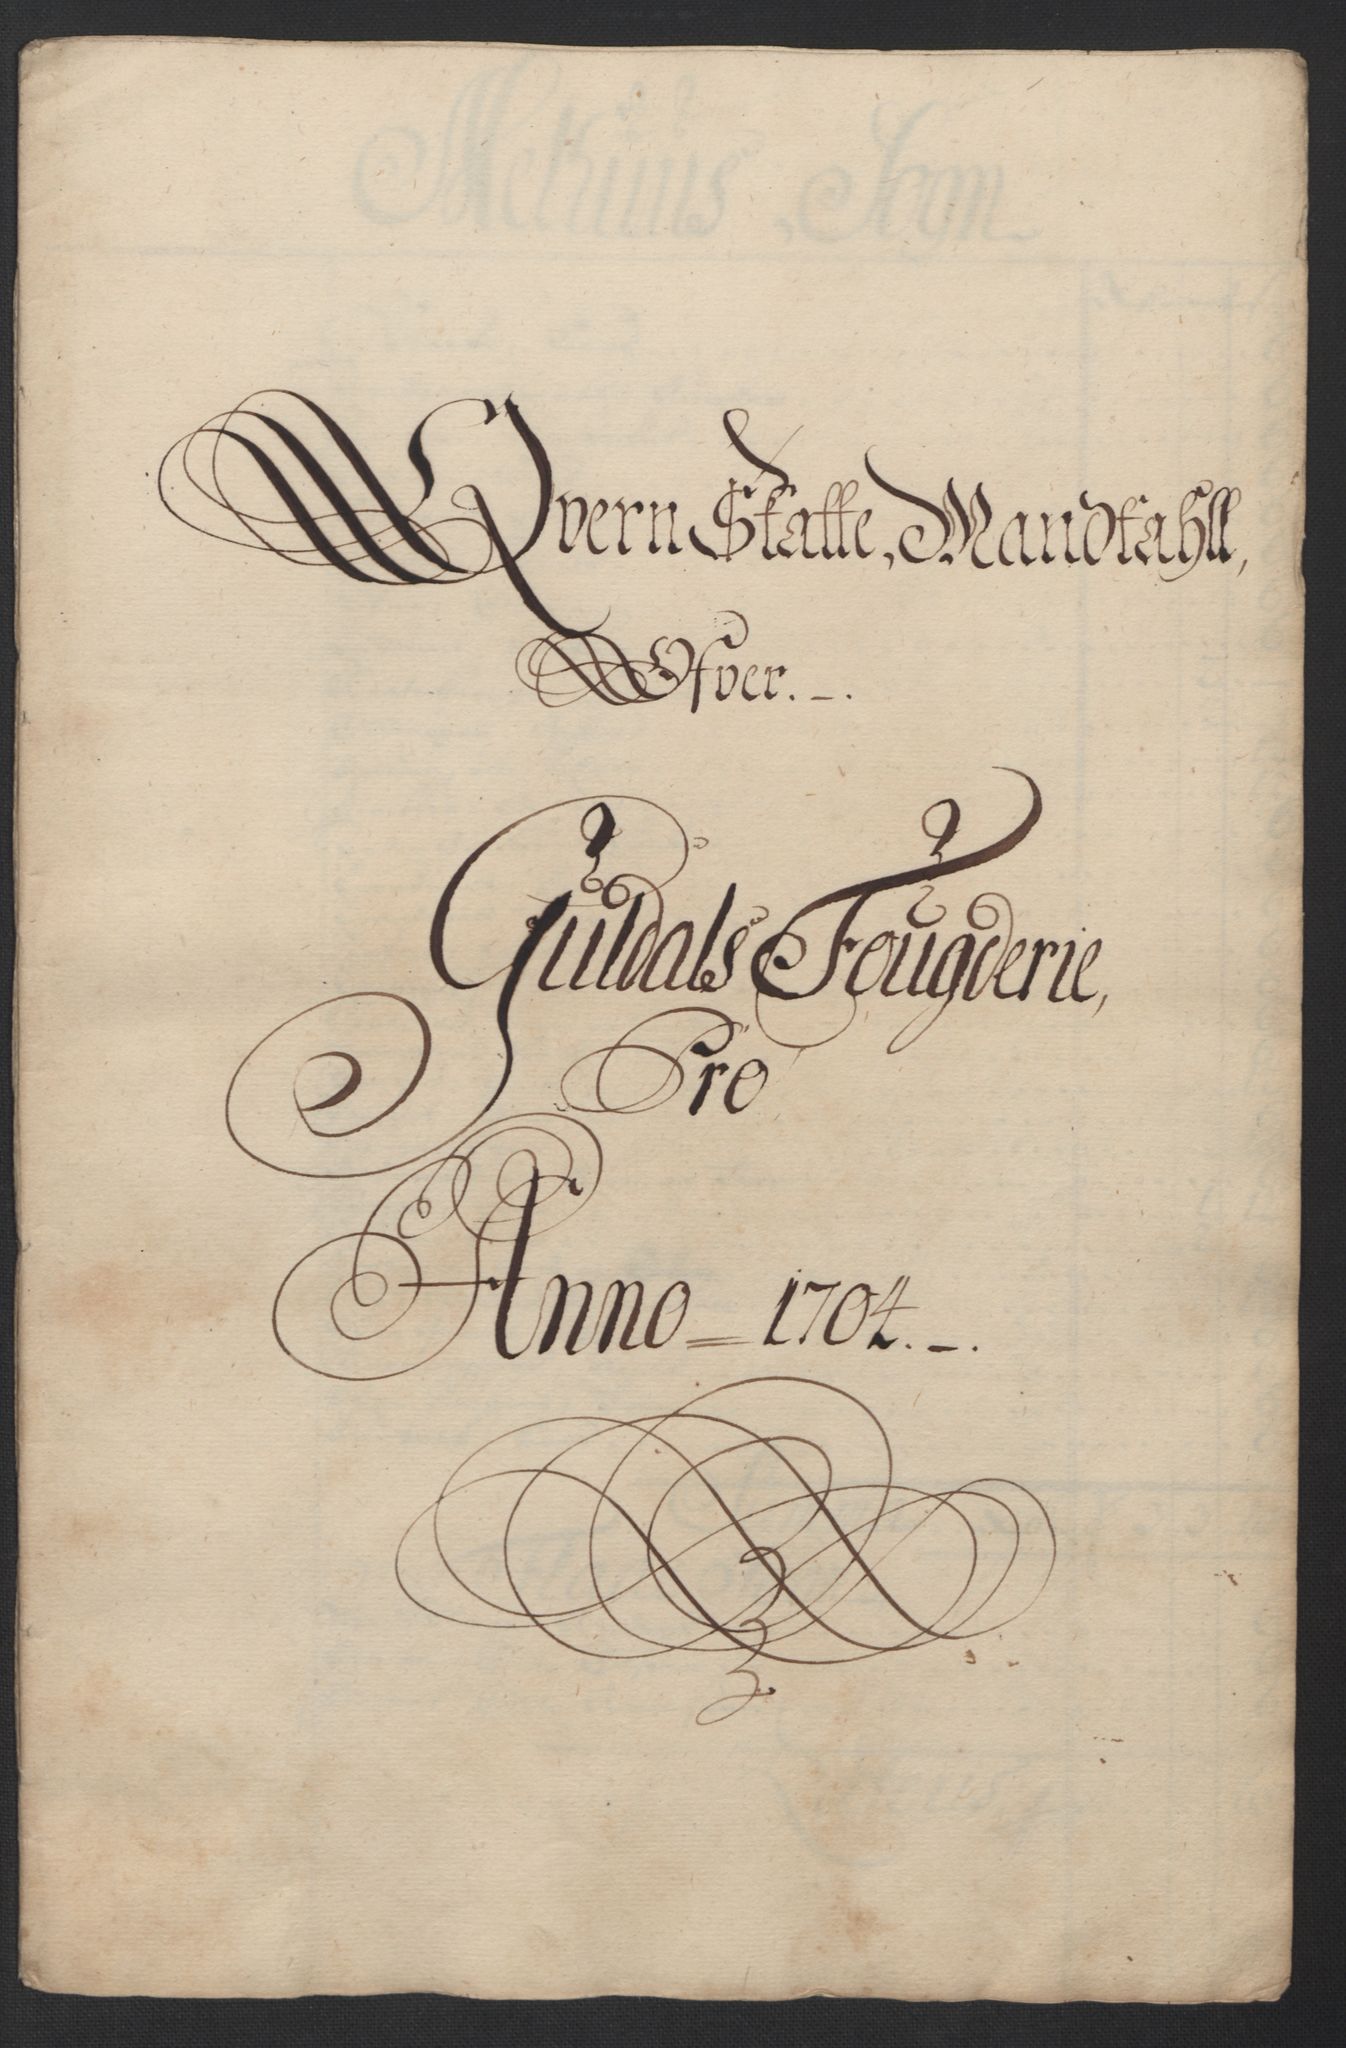 Qvern Skatte, Mandtahll,
Ofver. _ .
Guldals Fougderie,
Pro
Anno = 1704. _ .